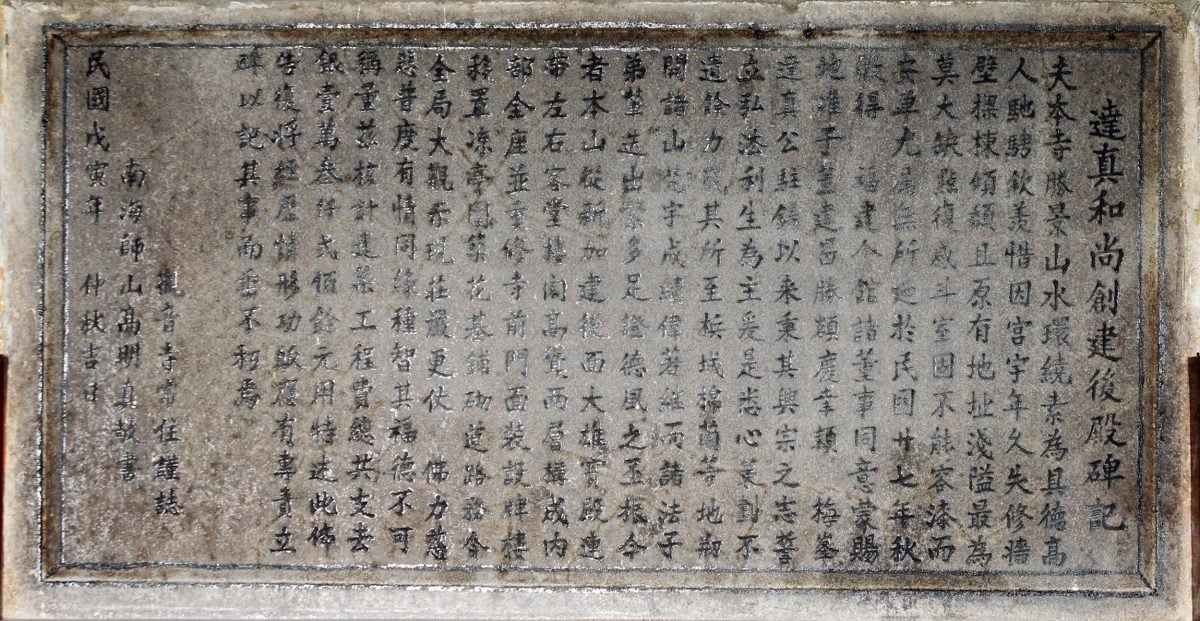 達真和尚創建後殿碑記
夫本寺勝景山水環繞素為具德高
人馳騁欽羨惜因宮宇年久失修牆
壁摧棟傾頹且原有地址淺隘最為
莫大缺點復感斗室固不能容漆而
安單尤屬無所迺於民囯廿七年秋
徵得　福建會館諸董事同意蒙賜
地堆于蓋建吾勝額慶幸賴　梅峯
達真公駐錫以来秉其興宗之志誓
立弘法利生為主爰是悉心策劃不
遺餘力或其所至檳城棉蘭等地剏
開諸山梵宇成績偉著継而諸法子
弟輩迭出繁多足證德風之丕振今
者本山從新加建後面大雄寳殿連
帶左右客堂樓閣高覽兩層構成内
部全座並重修寺前門面裝設牌樓
移置凉亭囯築花基鋪砌道路務令
全局大觀示現莊嚴更仗　佛力慈
悲普度有情同緣種智其福德不可
稱量茲核計建築工程費總共支去
銀壹萬叁仟弍佰餘元用特述此佈
告復將經歷情形功皈應有專責立
碑以記其事而垂不朽焉
觀音寺常住謹誌
南海師山高明真敬書
民國戊寅年　仲秋吉日